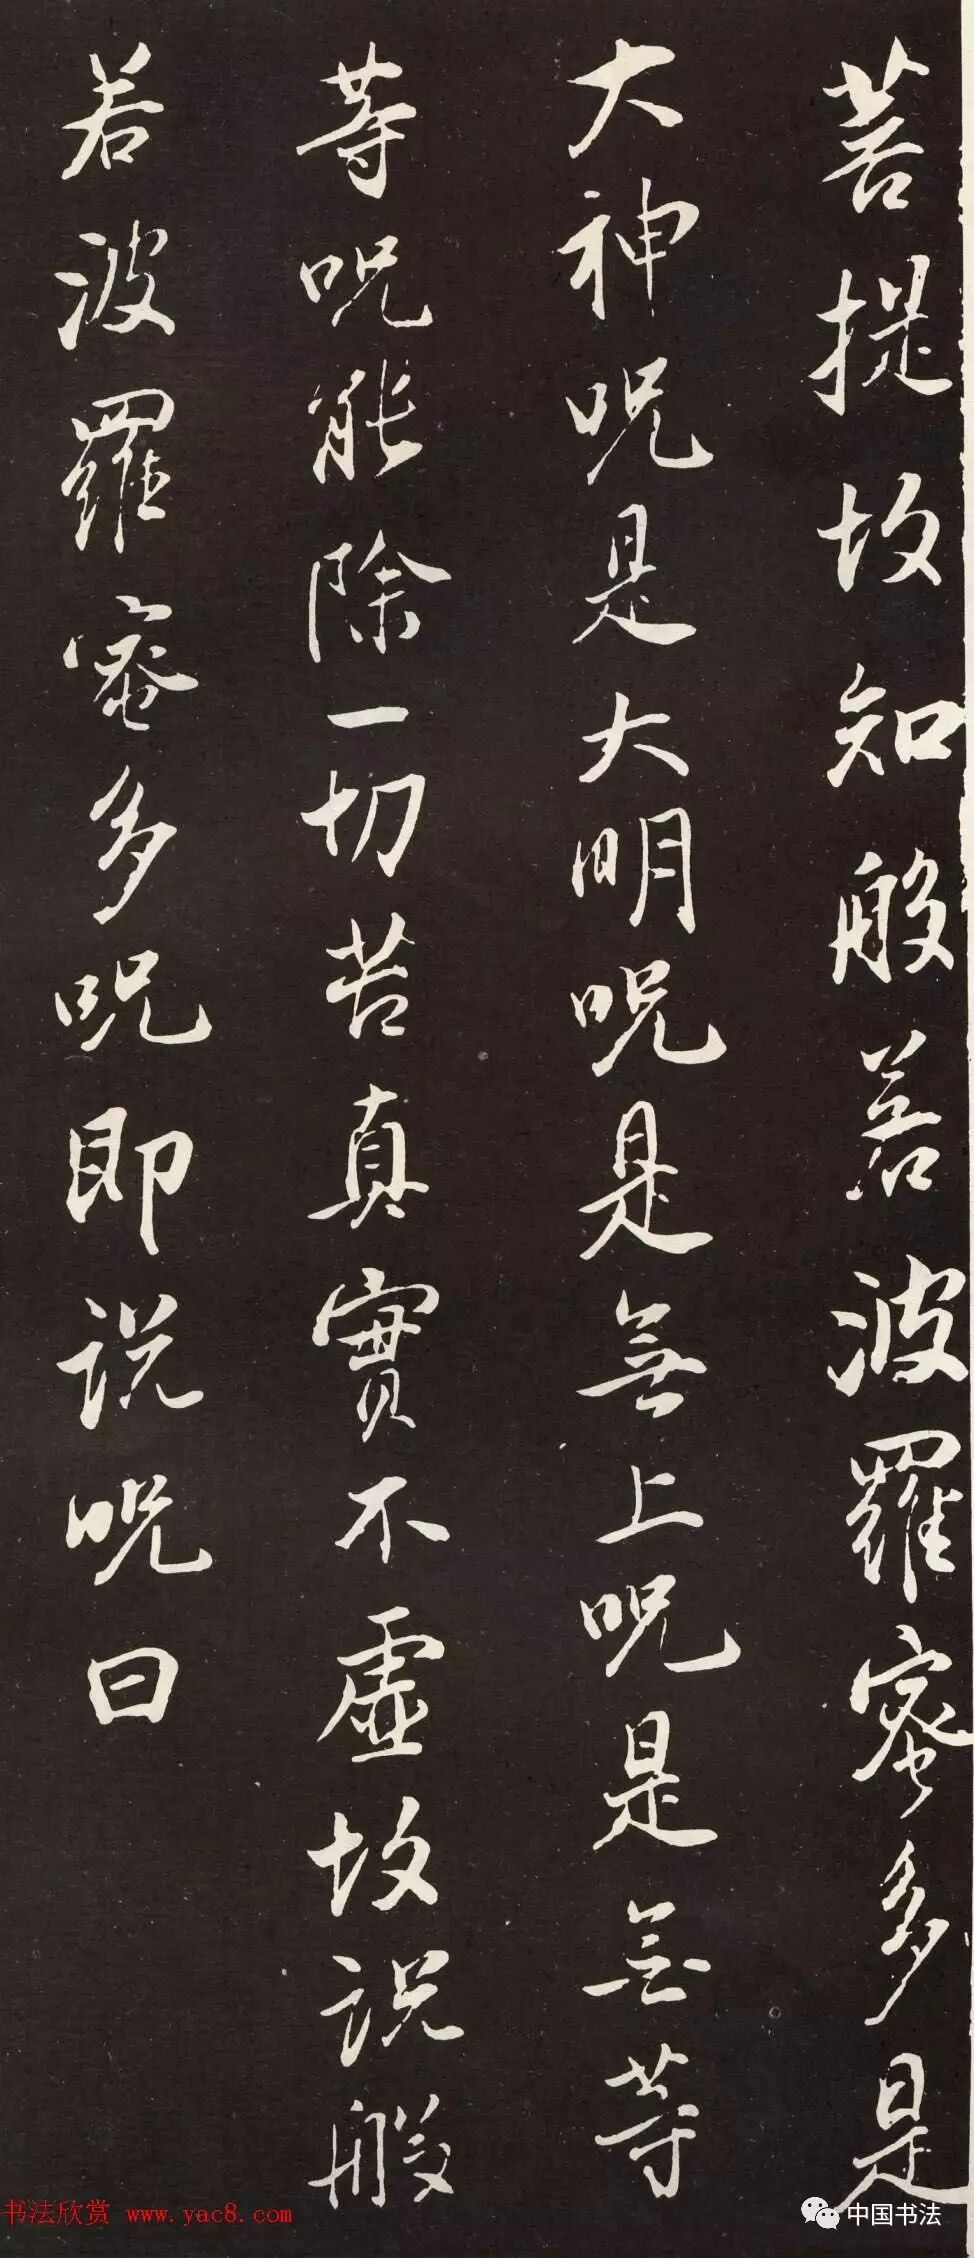 菩提故知般若波羅蜜多是
大神呪是大明呪是無上呪是無等
等呪能除一切苦真實不虛故說般
若波羅蜜多呪即說呪曰
书法欣赏 www.yac8.com
中国书法